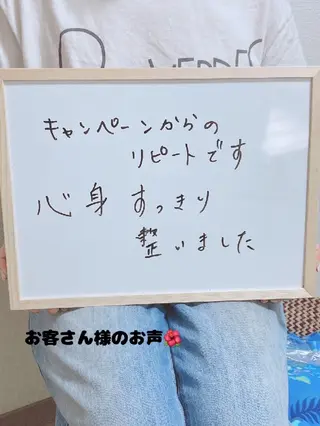 キャンペーンからの
リピートです
心身 すっきり
整いました
お客さん様のお声🌺